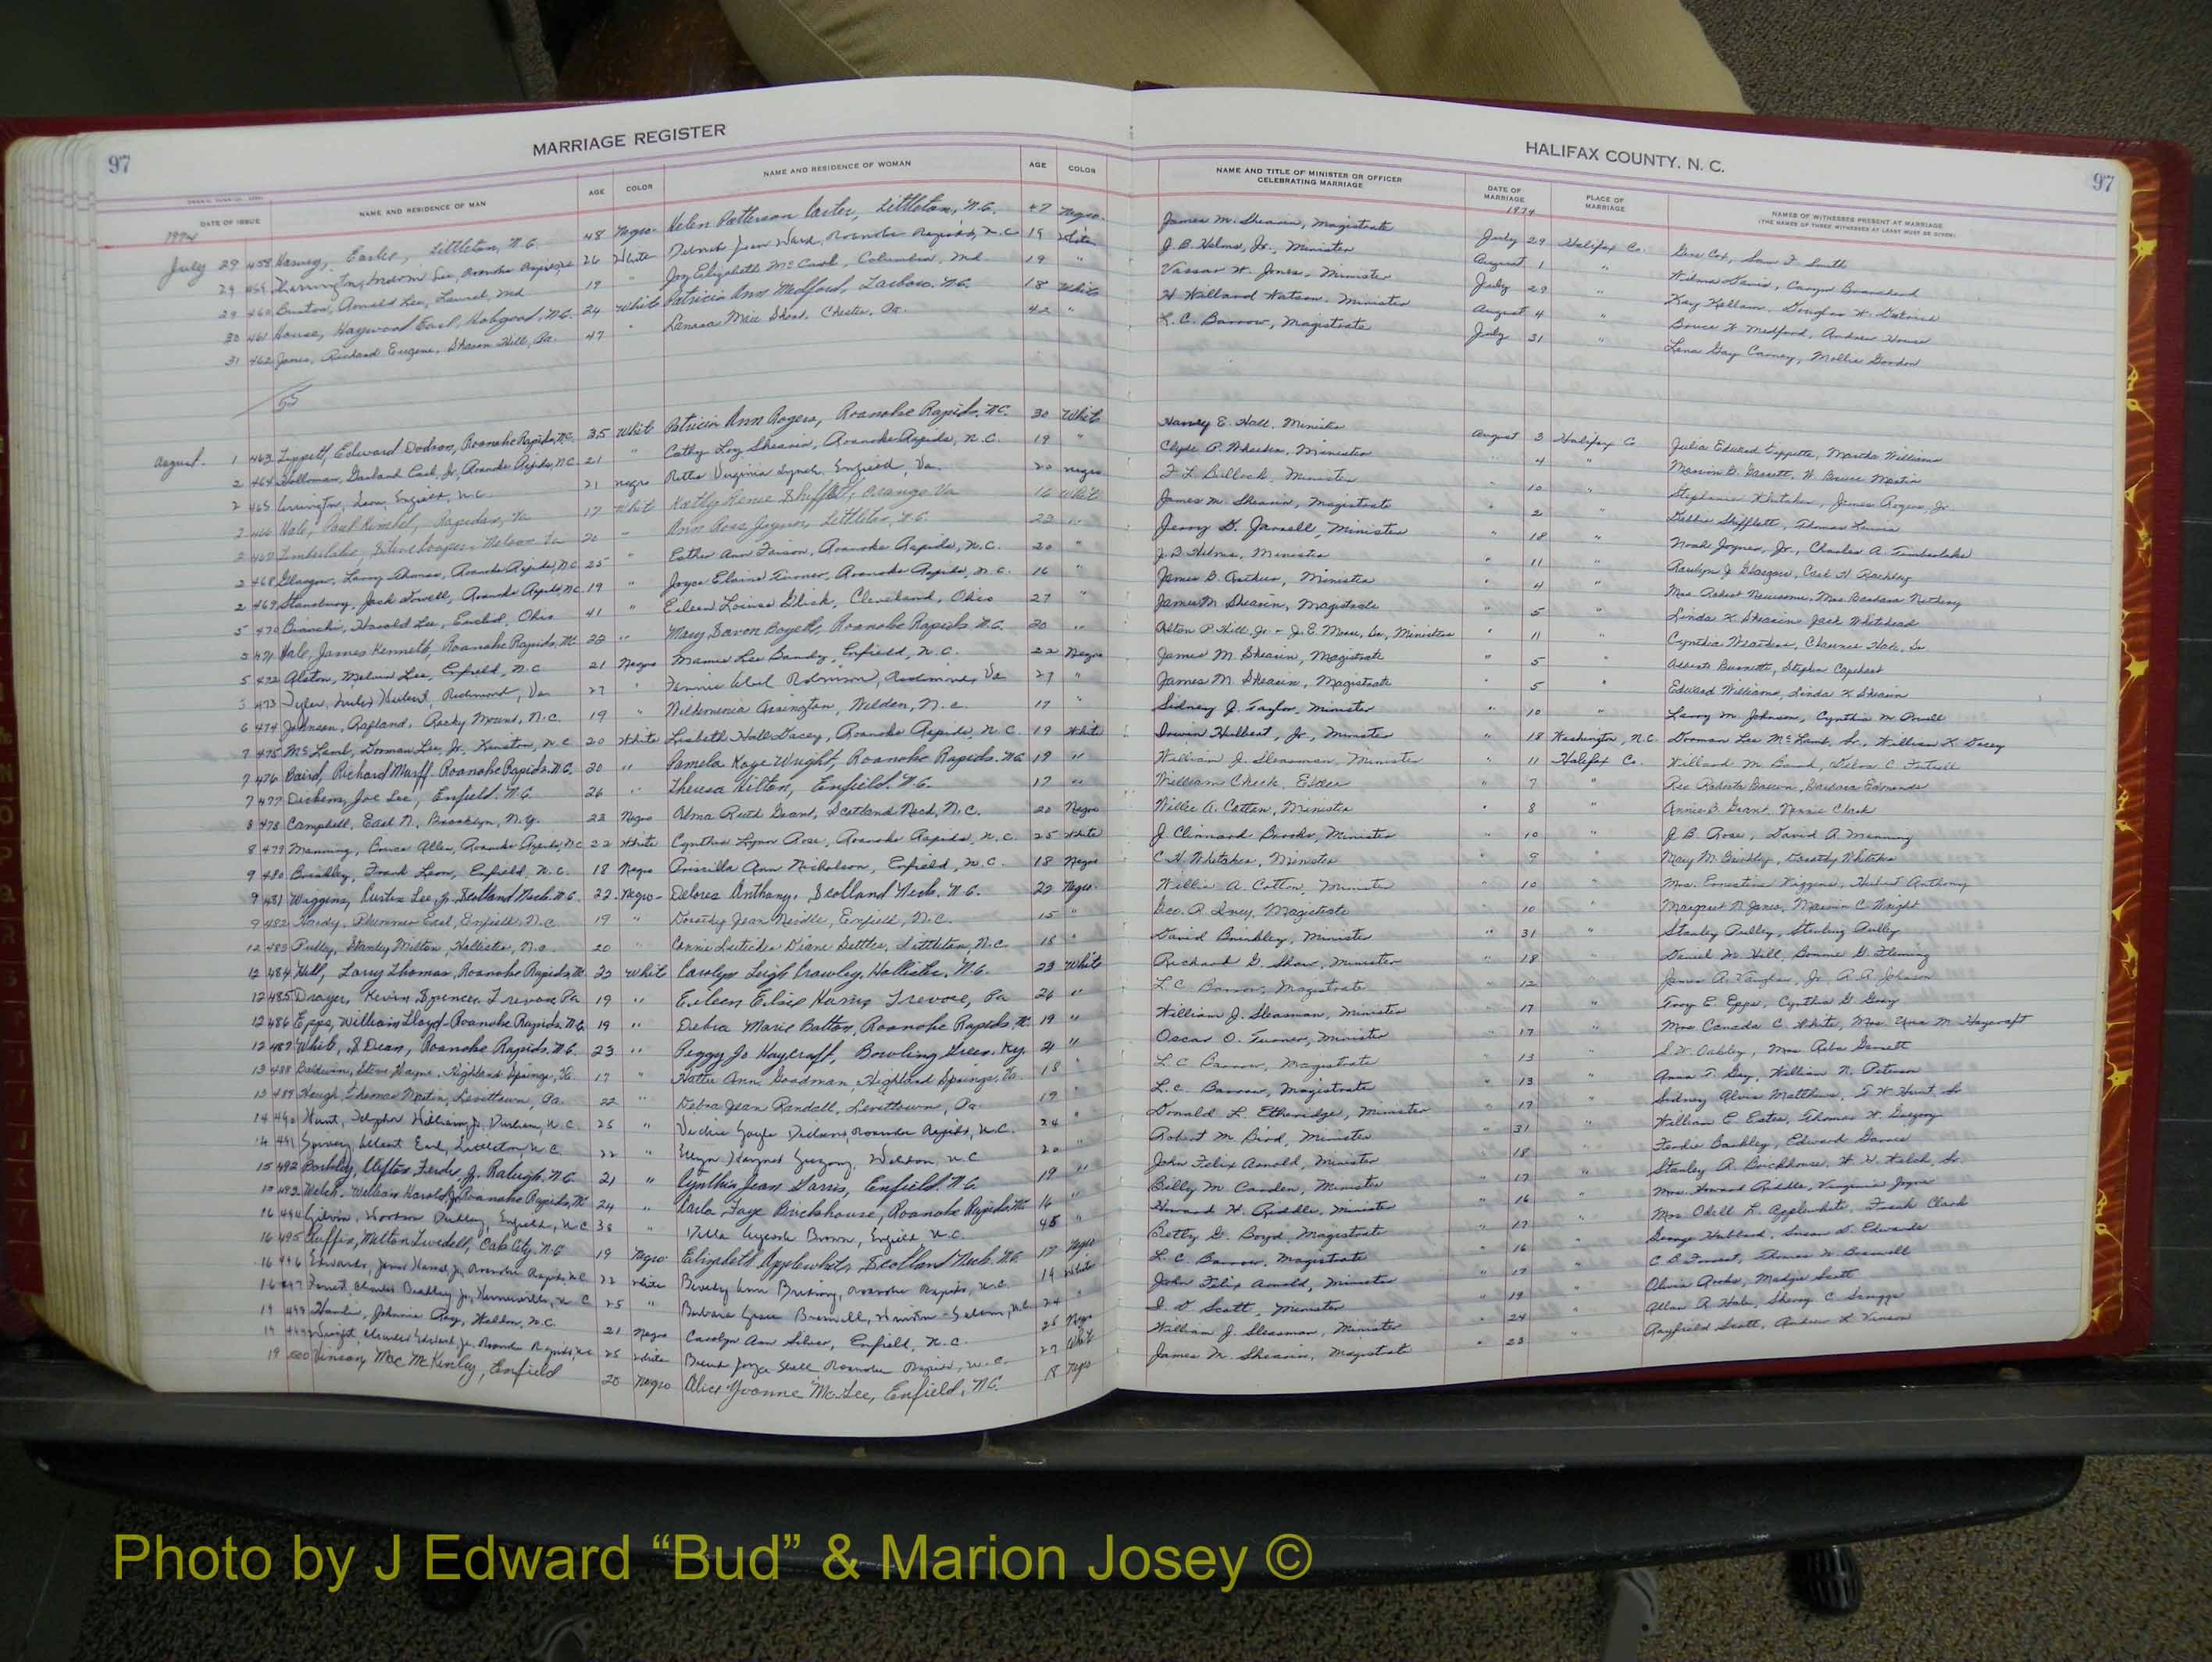 97
MARRIAGE REGISTER
HALIFAX COUNTY, N. C.
97
DATE OF ISSUE NAME AND RESIDENCE OF MAN AGE COLOR NAME AND RESIDENCE OF WOMAN AGE COLOR NAME AND TITLE OF MINISTER OR OFFICER CELEBRATING MARRIAGE DATE OF MARRIAGE PLACE OF MARRIAGE NAMES OF WITNESSES PRESENT AT MARRIAGE
(THE NAMES OF THREE WITNESSES AT LEAST MUST BE GIVEN)
1974 1974
July 29 458 Harvey, Earlie, Littleton, N.C. 48 Negro Helen Patterson Carter, Littleton, N.C. 47 Negro James M. Shearin, Magistrate July 29 Halifax Co. Gene Cox, Sam F. Smith
29 459 Roanoke Rapids, N.C. 26 White Jean Ward, Roanoke Rapids, N.C. 19 White J. B. Helms, Jr., Minister August 1 " Wilma Davis,
29 460 Arnold Lee, Laurel, Md 19 " Joy Elizabeth McCaul, Columbia, Md 19 " Vassar W. Jones, Minister July 29 " Kay Kellam, Douglas W.
30 461 House, Haywood Earl, Hobgood, N.C. 24 White Patricia Ann Medford, Tarboro, N.C. 18 White H Willard Watson, Minister August 4 " Bruce H Medford, Andrew House
31 462 Jones, Richard Eugene, Sharon Hill, Pa. 47 " Mae Short, Chester, Pa. 42 " L. C. Barrow, Magistrate July 31 " Lena Gay Carney, Mollie Gordon
55
August 1 463 Tippett, Edward Dodson, Roanoke Rapids, N.C. 35 White Patricia Ann Rogers, Roanoke Rapids, N.C. 30 White Harvey E. Hall, Minister August 3 Halifax Co Julia Edward Tippette, Martha Williams
2 464 Holloman, Garland Earl, Jr, Roanoke Rapids, N.C. 21 " Cathy Loy Shearin, Roanoke Rapids, N.C. 19 " Clyde P. Minister " 4 " Marion B. Garrett, W. Bruce Martin
2 465 Arrington, Leon, Enfield, N.C. 21 Negro Retta Virginia Lynch, Enfield, Va. 20 Negro F. L. Bullock, Minister " 10 " Stephanie Whitaker, James Rogers, Jr
2 466 Hale, Paul Kimbel, Rapidan, Va 17 White Kathy Renee Shifflett, Orange, Va 16 White James M. Shearin, Magistrate " 2 " Debbie Shifflett, Thomas Lewis
2 467 Timberlake, Steve Cooper, Nelson, Va 20 " Ann Rose Joyner, Littleton, N.C. 22 " Jerry D. Jarnell, Minister " 18 " Noah Joyner, Jr., Charles A. Timberlake
2 468 Glasgow, Larry Thomas, Roanoke Rapids, N.C. 25 " Esther Ann Faison, Roanoke Rapids, N.C. 20 " J. B. Helms, Minister " 11 " J. Glasgow, Carl H. Rackley
2 469 Stansbury, Jack Powell, Roanoke Rapids, N.C. 19 " Joyce Elaine Turner, Roanoke Rapids, N.C. 16 " James B. Minister " 4 " Mrs Robert Newsome, Mrs Barbara
5 470 Bianchi, Harold Lee, Euclid, Ohio 41 " Eileen Louise Glick, Cleveland, Ohio 27 " James M. Shearin, Magistrate " 5 " Linda K. Shearin, Jack Whitehead
5 471 Hale, James Kenneth, Roanoke Rapids, N.C. 22 " Mary Boyette, Roanoke Rapids, N.C. 20 " Alton P. Hill, Jr - J. E. Minister " 11 " Cynthia Clarence Hale, Sr
5 472 Alston, Melvin Lee, Enfield, N.C. 21 Negro Mamie Lee Bandy, Enfield, N.C. 22 Negro James M. Shearin, Magistrate " 5 " Albert Burnette, Stephen Capehart
5 473 Tyler, Hubert, Richmond, Va 27 " Fannie Robinson, Richmond, Va 27 " James M. Shearin, Magistrate " 5 " Edward Williams, Linda K. Shearin
6 474 Johnson, Ragland, Rocky Mount, N.C. 19 " Arrington, Weldon, N.C. 17 " Sidney J. Taylor, Minister " 10 " Larry M. Johnson, Cynthia M
7 475 McLamb, Dorman Lee, Jr., Kinston, N.C. 20 White Lisbeth Hall Dacey, Roanoke Rapids, N.C. 19 White Irwin Hulbert, Jr, Minister " 18 Washington, N.C. Dorman Lee McLamb, Sr., William K. Dacey
7 476 Baird, Richard Marff, Roanoke Rapids, N.C. 20 " Pamela Kaye Wright, Roanoke Rapids, N.C. 19 " William J. Sleasman, Minister " 11 Halifax Co. Willard M. Baird, Debra C. Futrell
7 477 Dickens, Joe Lee, Enfield, N.C. 26 " Theresa Hilton, Enfield, N.C. 17 " William Cheek, Elder " 7 " Roberta Barbara Edmonds
8 478 Campbell, Earl N., Brooklyn, N.Y. 22 Negro Alma Ruth Grant, Scotland Neck, N.C. 20 Negro Willie A. Cotton, Minister " 8 " Annie B. Grant, Clark
8 479 Manning, Bruce Allen, Roanoke Rapids, N.C. 22 White Cynthia Lynn Rose, Roanoke Rapids, N.C. 25 White J. Clinnard Brooks, Minister " 10 " J. B. Rose, David A. Manning
9 480 Brinkley, Frank Leon, Enfield, N.C. 18 Negro Priscilla Ann Nicholson, Enfield, N.C. 18 Negro C. H. Whitaker, Minister " 9 " Mary M. Brinkley, Dorothy Whitaker
9 481 Wiggins, Lee, Jr, Scotland Neck, N.C. 22 Negro Delores Anthony, Scotland Neck, N.C. 22 Negro Willie A. Cotton, Minister " 10 " Mrs. Ernestine Wiggins, Hubert Anthony
9 482 Hardy, Plummer Earl, Enfield, N.C. 19 " Dorothy Jean Neville, Enfield, N.C. 15 " Geo. A. Ivey, Magistrate " 10 " Margaret N. Jones, Marvin C. Wright
12 483 Pulley, Stanley Milton, Hollister, N.C. 20 " Diane Settles, Littleton, N.C. 18 " David Brinkley, Minister " 31 " Stanley Pulley, Sterling Pulley
12 484 Hill, Larry Thomas, Roanoke Rapids, N.C. 22 White Carolyn Leigh Crawley, Hollister, N.C. 23 White Richard G. Shaw, Minister " 18 " Daniel W. Hill, Bonnie G. Fleming
12 485 Drayer, Kevin Spencer, Trevose, Pa 19 " Eileen Harris, Trevose, Pa 26 " L. C. Barrow, Magistrate " 12 " James A. Vaughan, Jr, A. R. Johnson
12 486 Epps, William Lloyd - Roanoke Rapids, N.C. 19 " Debra Marie Batton, Roanoke Rapids, N.C. 19 " William J. Sleasman, Minister " 17 " Troy E. Epps, Cynthia G. Gray
12 487 White, S Dean, Roanoke Rapids, N.C. 23 " Peggy Jo Haycraft, Bowling Green, Ky. 21 " Oscar O. Turner, Minister " 17 " Mrs Canada C. White, Mrs Una M. Haycraft
13 488 Baldwin, Steve Wayne, Highland Springs, Va. 17 " Hattie Ann Goodman, Highland Springs, Va. 18 " L. C. Barrow, Magistrate " 13 " S. W. Oakley, Mrs Reba Garrett
13 489 Keugh, Thomas Martin, Levittown, Pa. 22 " Debra Jean Randall, Levittown, Pa. 19 " L. C. Barrow, Magistrate " 13 " Anna T. Gay, William N. Peterson
14 490 Hunt, William, Jr, Durham, N.C. 25 " Vickie Gayle Roanoke Rapids, N.C. 24 " Donald L. Etheridge, Minister " 17 " Sidney Alvis Matthews, T. W. Hunt, Sr
14 491 Spivey, Albert Earl, Littleton, N.C. 22 " Gregory, Weldon, N.C. 20 " Robert M. Bird, Minister " 31 " William E. Estes, Thomas W. Gregory
15 492 Barkley, Clifton Ferdie, Jr. Raleigh, N.C. 21 " Cynthia Jean Garris, Enfield, N.C. 19 " John Felix Arnold, Minister " 18 " Ferdie Barkley, Edward Garris
15 493 Welch, William Harold, Jr, Roanoke Rapids, N.C. 24 " Carla Faye Brickhouse, Roanoke Rapids, N.C. 16 " Billy M. Carden, Minister " 17 " Stanley R. Brickhouse, W. H. Welch, Sr.
16 494 Dudley, Enfield, N.C. 38 " Brown, Enfield, N.C. 45 " Howard H. Riddle, Minister " 16 " Mrs Howard Riddle, Virginia Joyce
16 495 Ruffin, Milton Twedell, Oak City, N.C. 19 Negro Elizabeth Applewhite, Scotland Neck, N.C. 17 Negro Betty G. Boyd, Magistrate " 17 " Mrs Odell L. Applewhite, Frank Clark
16 496 Edwards, Jr, Roanoke Rapids, N.C. 22 White Beverly Ann Roanoke Rapids, N.C. 19 White L. C. Barrow, Magistrate " 16 " George Hubbard, Susan D. Edwards
16 497 Forrest, Charles Bradley, Jr, Kernersville, N.C. 25 " Barbara Grace Winston-Salem, N.C. 24 " John Felix Arnold, Minister " 17 " C. B. Forrest, Thomas W.
19 498 Johnnie Ray, Weldon, N.C. 21 Negro Carolyn Ann Silver, Enfield, N.C. 26 Negro I. D. Scott, Minister " 19 " Olivia Madge Scott
19 499 Edward, Jr, Roanoke Rapids, N.C. 25 White Joyce Roanoke Rapids, N.C. 27 White William J. Sleasman, Minister " 24 " Allan R. Hale, Sherry C. Scruggs
19 500 Vinson, Mac McKinley, Enfield 20 Negro Alice Yvonne McLee, Enfield, N.C. 18 Negro James M. Shearin, Magistrate " 23 " Rayfield Scott, Andrew L. Vinson
Photo by J Edward “Bud” & Marion Josey ©